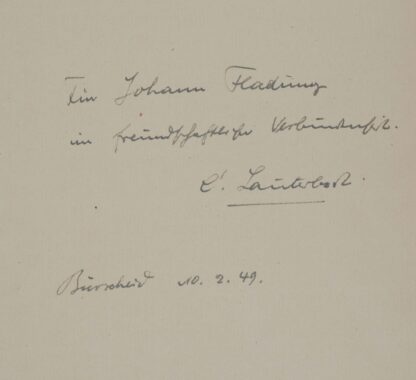 Für Johann Fladung
in freundschaftlicher Verbundenheit.
C. Lauterbach.
Burscheid 10. 2. 49.